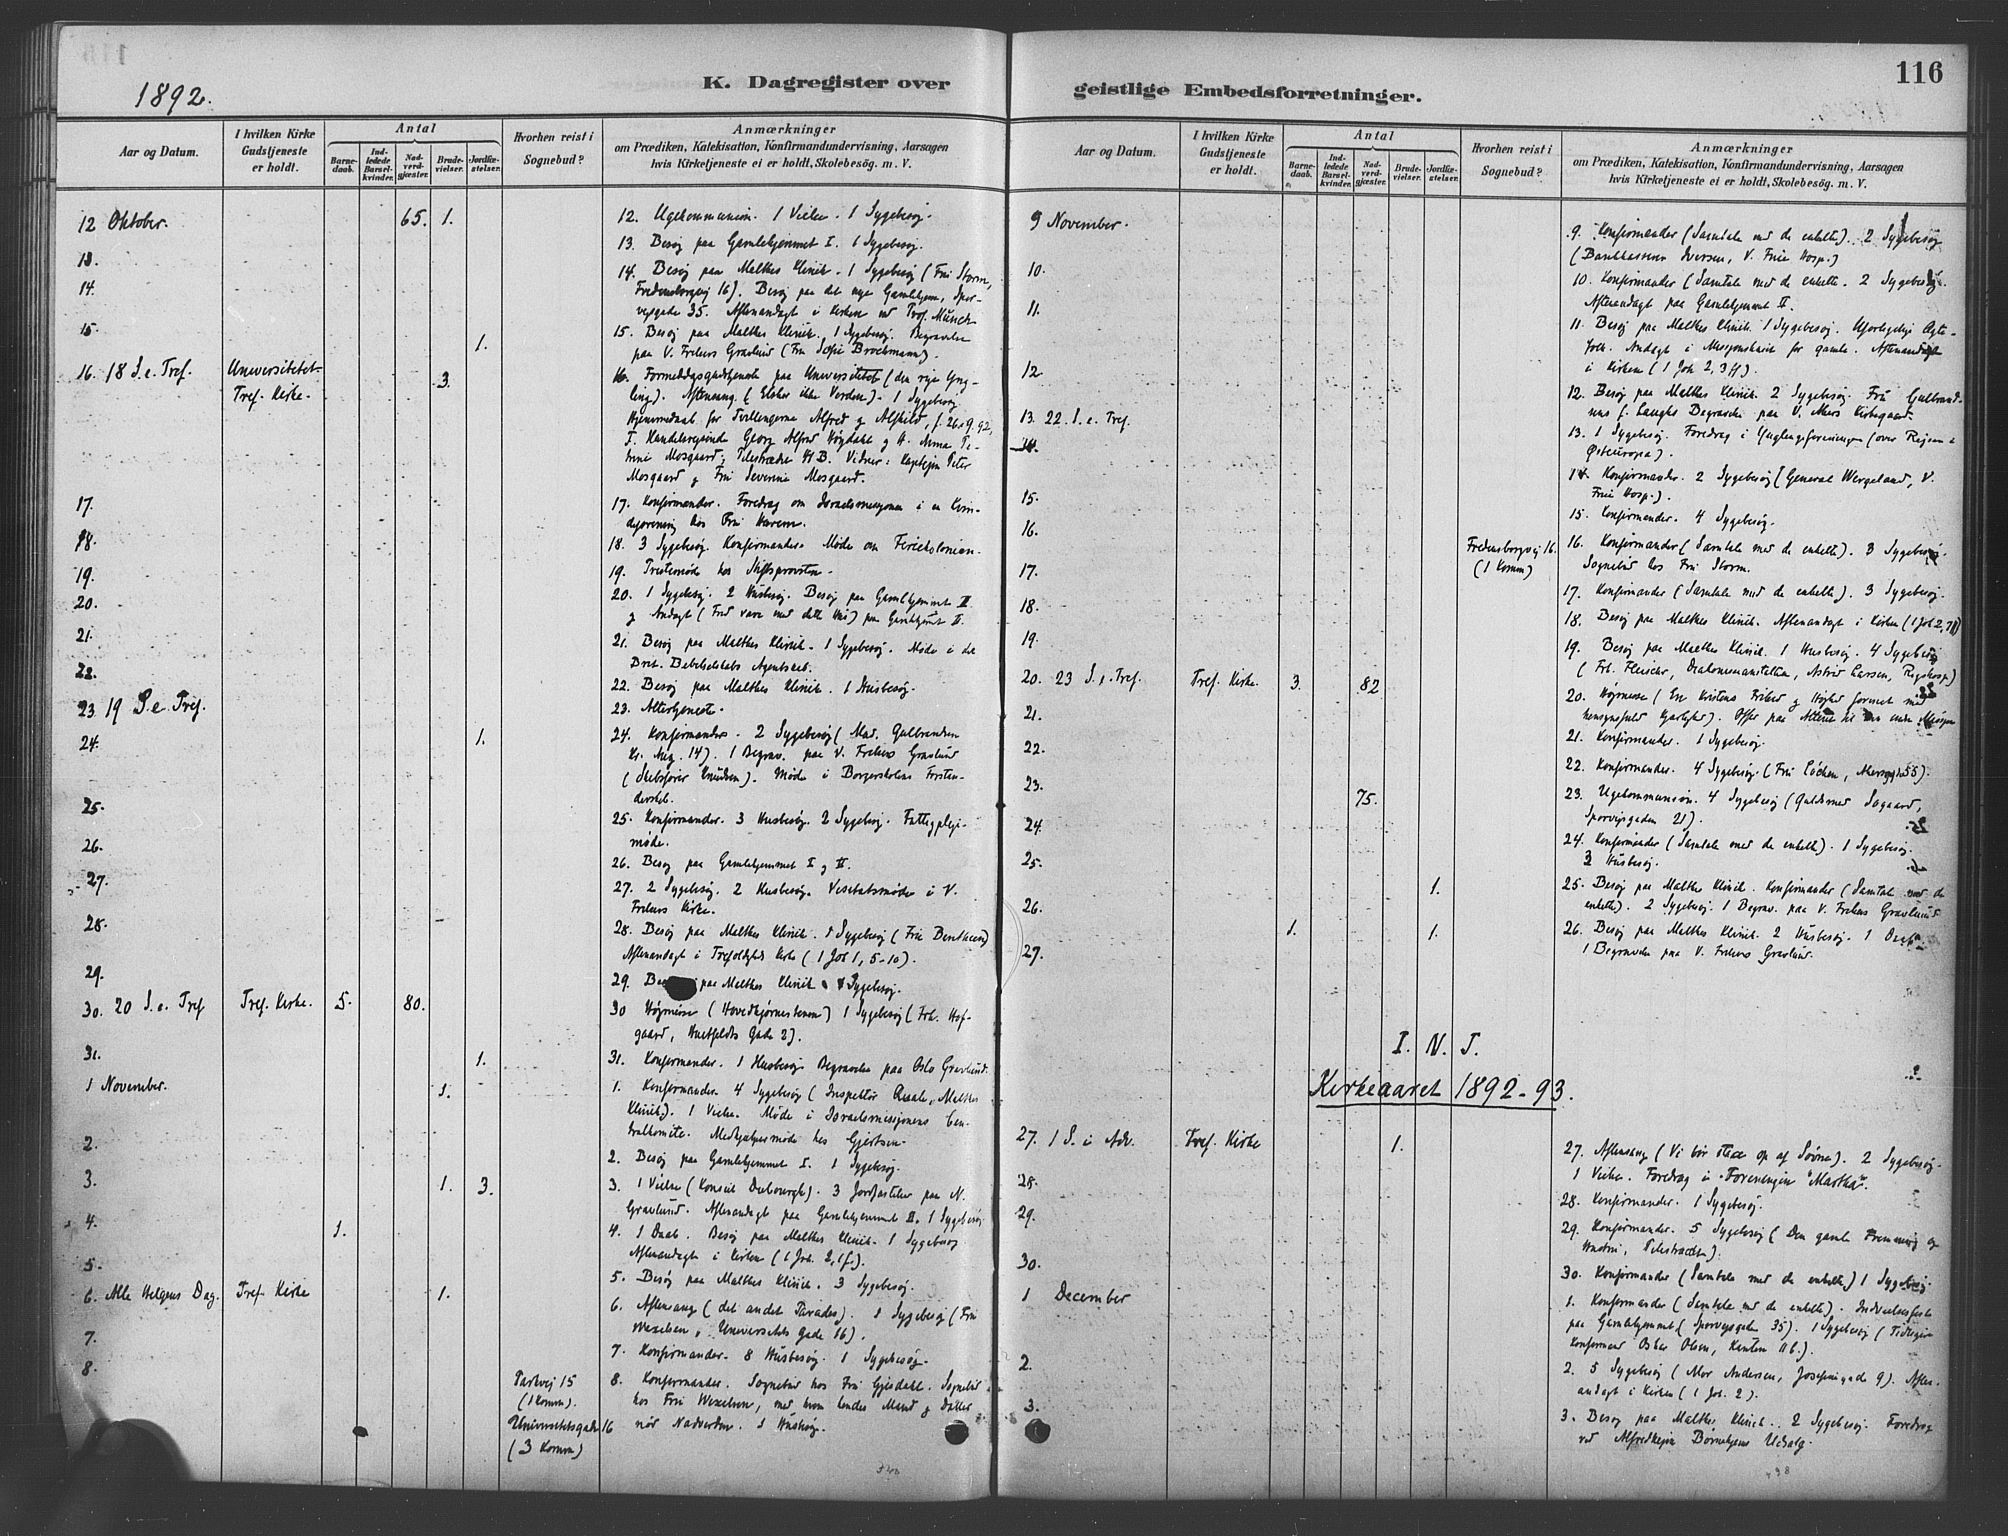 1892.
K. Dagregister over
Aar og Datum.
I hvilken Kirke Gudstjeneste er holdt.
Antal
Barnedaab.
Indledede Barselkvinder.
Nadverdgjæster.
Brudevielser.
Jordfæstelser.
Hvorhen reist i Sognebud?
Anmærkninger
om Prædiken, Katekisation, Konfirmandundervisning, Aarsagen
hvis Kirketjeneste ei er holdt, Skolebesøg. m. V.
12 Oktober. 65. 1. 12. Ugekommunion. 1 Vielse. 1 Sygebesøg.
13. 13. Besøg paa Gamlehjemmet I. 1 Sygebesøg.
14. 14. Besøg paa Malthes Klinik. 1 Sygebesøg (Fru Storm,
Fredensborgvej 16). Besøg paa det nye Gamlehjem, Spor-
vejsgade 35. Aftenandagt i Kirken ved Prof. Münch
15. 1. 15. Besøg paa Malthes Klinik. 1 Sygebesøg. Begravelse
paa V. Frelsers Gravlund (Fru Sofie Brochmann).
16. 18 S. e. Tref. Universitetet 3. 16. Formiddagsgudstjeneste paa Universitetet (den rige Yng-
Tref. Kirke. ling). Aftensang. (Elsker ikke Verden). 1 Sygebesøg
Hjemmedaab for Tvillingerne Alfred og Alfhild, f. 26 . 9. 92,
Georg Alfred Høydahl og H. Anna Pe-
trine Mosgaard, Pilestrædet 41 B. Vidner: Kaptejn Peter
Mosgaard og Fru Severine Mosgaard.
17. 17. Konfirmander. Foredrag om Israelsmissjonen i en Kvin-
deforening hos Fru Harem.
18. 18. 3 Sygebesøg. Konfirmander. Møde om Feriekolonien.
19. 19. Prestemøde hos Stiftsprovsten.
20. 20. 1 Sygebesøg. 2 Husbesøg. Besøg paa Gamlehjemmet II
og Andagt (Fred være med dette Hus) paa Gamlehjemmet II.
21. 21. Besøg paa Malthes Klinik. 1 Sygebesøg. Møde i det
Brit. Bibelselskabs Agentskab.
22. 22. Besøg paa Malthes Klinik. 1 Husbesøg.
23. 19 S. e. Tref. 23. Altertjeneste.
24. 1. 24. Konfirmander. 2 Sygebesøg (Mad. Gulbrandsen
14). 1 Begrav. paa V. Frelsers Gravlund
(Skibsfører Knudsen). Møde i Borgerskolens Forstan-
derskab.
25. 25. Konfirmander. 3 Husbesøg. 2 Sygebesøg. Fattigpleje-
møde.
26. 26. Besøg paa Gamlehjemmet I og II.
27. 27. 2 Sygebesøg. 2 Husbesøg. Visitatsmøde i V.
Frelsers Kirke.
28. 28. Besøg paa Malthes Klinik. 1 Sygebesøg (Fru Bentheen)
Aftenandagt i Trefoldigheds Kirke (1 Joh 1, 5-10).
29. 29. paa Malthes Klinik. Sygebesøg.
30. 20 S. e. Tref. Tref. Kirke. 5. 80. 30 Højmesse (Hovedhjørnestenen) 1 Sygebesøg (Frk. Hof-
gaard, Huitfeldts Gade 2).
31. 1. 31. Konfirmander. 1 Husbesøg. Begravelse paa Oslo Gravlund.
1 November. 1. 1. Konfirmander. 4 Sygebesøg (Inspektør Malthes
Klinik). 1 Vielse. Møde i Israelsmissjonens Cen-
tralkomite. Medhjælpermøde hos Gjertsen.
2. 2. Besøg paa Gamlehjemmet I. 1 Sygebesøg.
3. 1. 3. 3. 1 Vielse (Konsul Duborgh). 3 Jordfæstelser paa N.
Gravlund. Aftenandagt paa Gamlehjemmet II. 1 Sygebesøg
4. 1. 4. 1 Daab. Besøg paa Malthes Klinik. 1 Sygebesøg
Aftenandagt i Kirken (1 Joh. 2, 1 f.).
5. 5. Besøg paa Malthes Klinik. 3 Sygebesøg.
6. Alle Helgens Dag. Tref. Kirke 1. 6. Aftensang (det andet Paradis). 1 Sygebesøg (Fru
Wexelsen, Universitets Gade 16).
7. 7. Konfirmander. 8 Husbesøg. 1 Sygebesøg.
8. Parkvej 15 8. Konfirmander. Sognebud hos Fru Gjesdahl. Sognebud
(1 Komm). hos Fru Wexelsen, med hvem hendes Mand og Datter
Universitetsgade 16 nød Nadverden. 1 Husbesøg.
(3 Komm)
116
geistlige Embedsforretninger.
Aar og Datum.
I hvilken Kirke Gudstjeneste er holdt.
Antal
Barnedaab.
Indledede Barselkvinder.
Nadverdgjæster.
Brudevielser.
Jordfæstelser.
Hvorhen reist i Sognebud?
Anmærkninger
om Prædiken, Katekisation, Konfirmandundervisning, Aarsagen
hvis Kirketjeneste ei er holdt, Skolebesøg. m. V.
9 November. 9. Konfirmander (Samtale med de enkelte). 2 Sygebesøg
(Bankkasserer Iversen, V. Frue Hosp.)
10. 10. Konfirmander (Samtale med de enkelte. 2 Sygebesøg.
Aftenandagt paa Gamlehjemmet II.
11. 11. Besøg paa Malthes Klinik. 1 Sygebesøg. Uforligelige Ægte-
folk. Andagt i Missjonshuset for gamle. Aftenandagt
i Kirken (1 Joh 2, 3 ff).
12 12. Besøg paa Malthes Klinik. 2 Sygebesøg. Fru Gulbrand-
sens f. Laughs Begravelse paa V. Akers Kirkegaard.
13. 22. S. e. Tref. 13. 1 Sygebesøg. Foredrag i Ynglingeforeningen (over Rejsen i
Østeuropa).
14. 14. Konfirmander. 2 Sygebesøg (General Wergeland, V.
Frue Hosp.).
15. 15. Konfirmander. 4 Sygebesøg.
16. Fredensborgvej 16. 16. Konfirmander (Samtale med de enkelte). 3 Sygebesøg.
(1 Komm) Sognebud hos Fru Storm.
17. 17. Konfirmander (Samtale med de enkelte). 3 Sygebesøg.
18. 18. Besøg paa Malthes Klinik. Aftenandagt i Kirken (1 Joh 2, 7 ff)
19. 19. Besøg paa Malthes Klinik. 1 Husbesøg. 4 Sygebesøg
(Frk. Fleischer, Diakonissanstalten, Astrid Larsen, Rigshosp.)
20. 23 S. e. Tref. Tref. Kirke. 3. 82 20. Højmesse (En Kristens Frihed og Højhed forenet med
hensynsfuld Kjærlighed). Offer paa Alteret til den indre Missjon
21. 21. Konfirmander. 1 Sygebesøg.
22. 22. Konfirmander. 4 Sygebesøg. (Fru Löchen, Akersgade 55).
23. 75. 23. Ugekommunion. 4 Sygebesøg (Guldsmed Aagaard,
Sporvejsgaden 21).
24. 24. Konfirmander (Samtale med de enkelte). 1 Sygebesøg.
3 Husbesøg.
25. 1. 25. Besøg paa Malthes Klinik. Konfirmander (Samtale med de
enkelte). 2 Sygebesøg. 1 Begrav. paa V. Frelsers Gravlund.
26. 1. 1. 26. Besøg paa Malthes Klinik. 2 Husbesøg. 1 Daab.
27. 1 Begravelse paa V. Frelsers Gravlund.
I. N. J.
Kirkeaaret 1892-93.
27. 1 S. i Adv. Tref. Kirke 1. 27. Aftensang (Vi bør staa op af Søvne). 2 Sygebesøg.
1 Vielse. Foredrag i Foreningen "Martha".
28. 28. Konfirmander. 1 Sygebesøg.
29. 29. Konfirmander. 5 Sygebesøg (Den gamle og
Hustru, Pilestrædet).
30. 30. Konfirmander (Samtale med de enkelte) 1 Sygebesøg.
1 December 1. Konfirmander (Samtale med de enkelte). Indvielsesfest
paa Gamlehjemmet (Sporvejsgaden 35). 1 Sygebesøg (Tidligere
Konfirmand Oskar Olsen, 116.).
2. 2. 5 Sygebesøg (Mor Andersen, Josefinegade 9). Aften-
andagt i Kirken (1 Joh. 2).
3. 3. Besøg paa Malthes Klinik. 2 Sygebesøg. Foredrag
ved Børnehjems Udsalg.